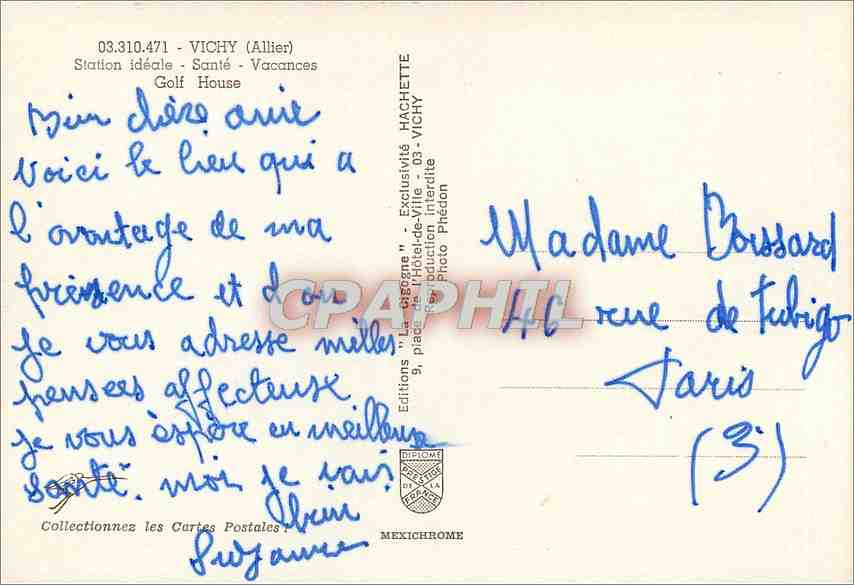 03.310.471 - VICHY (Allier)
Station idéale - Santé - Vacances
Golf House
Bien chère amie
Voici le lieu qui a
l'avantage de ma
présence et d'ou
je vous adresse milles
pensees affecteuse
je vous éspère en meilleure
santé. moi je vais
bien
Suzanne
Collectionnez les Cartes Postales !
Editions "La Cigogne" - Exclusivité HACHETTE
9, place de l'Hôtel-de-Ville - 03 - VICHY
Reproduction interdite
Photo Phédon
DIPLOME
PRESTIGE
DE LA
FRANCE
MEXICHROME
Madame Boissard
46 rue de Turbigo
Paris
(3)
CPAPHIL